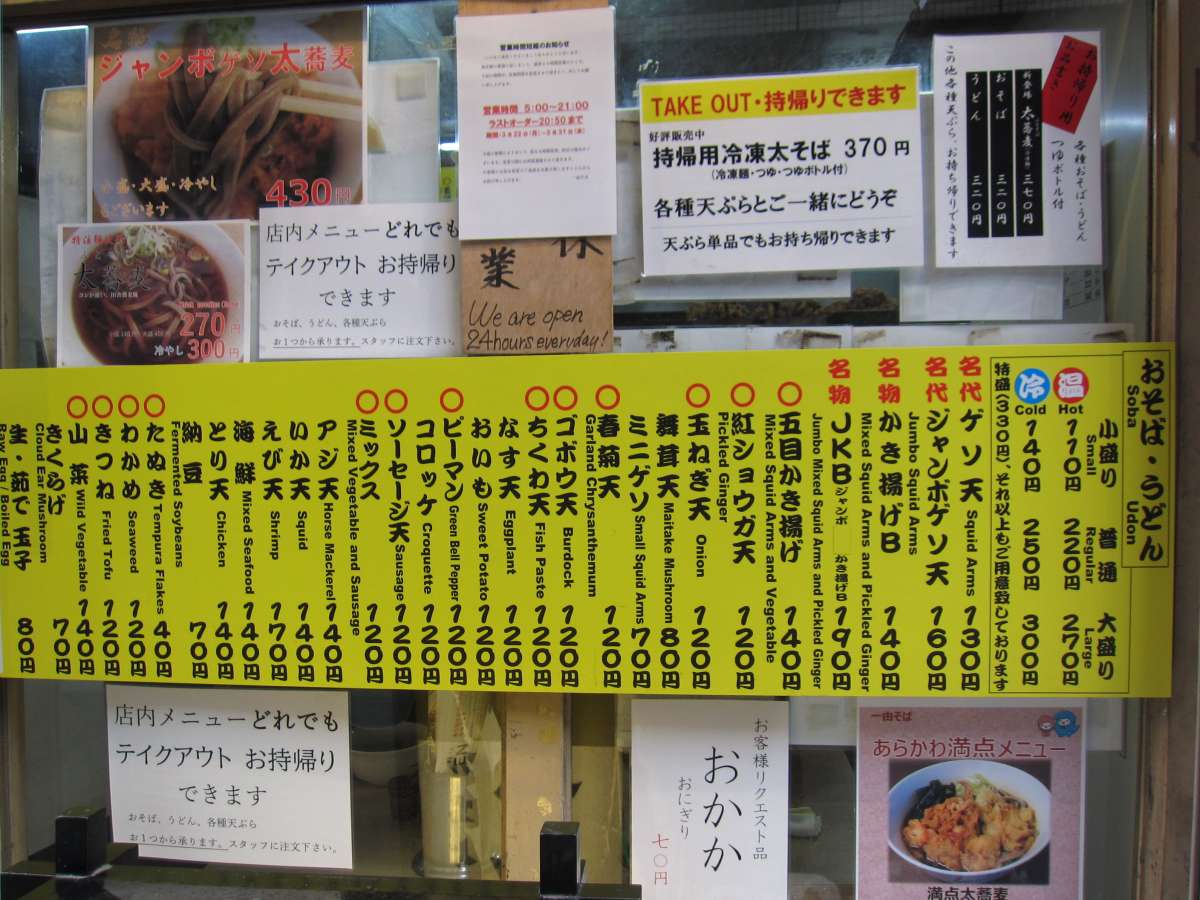 ジャンボゲソ太蕎麦
小盛・大盛・冷やし
もございます
430円
太蕎麦
270円
冷やし 300円
店内メニューどれでも
テイクアウト お持帰り
できます
おそば、うどん、各種天ぷら
お1つから承ります。スタッフに注文下さい。
営業時間短縮のお知らせ
営業時間 5:00~21:00
ラストオーダー20:50まで
休
業
We are open
24hours everyday!
TAKE OUT・持帰りできます
好評販売中
持帰用冷凍太そば 370円
(冷凍麺・つゆ・つゆボトル付)
各種天ぷらとご一緒にどうぞ
天ぷら単品でもお持ち帰りできます
お持帰り用
お品書き
各種おそば・うどん
つゆボトル付
新登場 太蕎麦 三七〇円
おそば 三二〇円
うどん 三二〇円
この他各種天ぷら、お持ち帰りできます
おそば・うどん
Soba Udon
小盛り 普通 大盛り
Small Regular Large
温 Hot 110円 220円 270円
冷 Cold 140円 250円 300円
特盛(330円)、それ以上もご用意致しております
名代 ゲソ天 Squid Arms 130円
名代 ジャンボゲソ天 160円
Jumbo Squid Arms
名物 かき揚げB 140円
Mixed Squid Arms and Pickled Ginger
名物 JKB ジャンボ かき揚げB 190円
Jumbo Mixed Squid Arms and Pickled Ginger
○五目かき揚げ 140円
Mixed Squid Arms and Vegetable
○紅ショウガ天 120円
Pickled Ginger
○玉ねぎ天 Onion 120円
舞茸天 Maitake Mushroom 80円
ミニゲソ Small Squid Arms 70円
○春菊天 120円
Garland Chrysanthemum
○ゴボウ天 Burdock 120円
○ちくわ天 Fish Paste 120円
なす天 Eggplant 120円
おいも Sweet Potato 120円
○ピーマン Green Bell Pepper 120円
コロッケ Croquette 120円
○ソーセージ天 Sausage 120円
○ミックス 120円
Mixed Vegetable and Sausage
アジ天 Horse Mackerel 140円
いか天 Squid 140円
えび天 Shrimp 170円
海鮮 Mixed Seafood 140円
とり天 Chicken 140円
納豆 70円
Fermented Soybeans
○たぬき Tempura Flakes 40円
○わかめ Seaweed 120円
○きつね Fried Tofu 120円
○山菜 Wild Vegetable 140円
きくらげ 70円
Cloud Ear Mushroom
生・茹で玉子 80円
Raw Egg / Boiled Egg
店内メニューどれでも
テイクアウト お持帰り
できます
おそば、うどん、各種天ぷら
お1つから承ります。スタッフに注文下さい。
お客様リクエスト品
おかか
おにぎり
七〇円
一由そば
あらかわ満点メニュー
満点太蕎麦